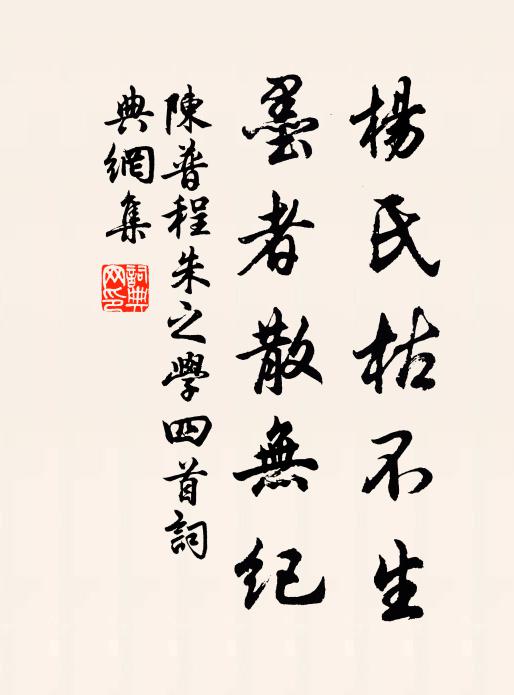 楊氏枯不生
墨者散無紀
陳普程朱之學四首詞
典網集
詞典網印